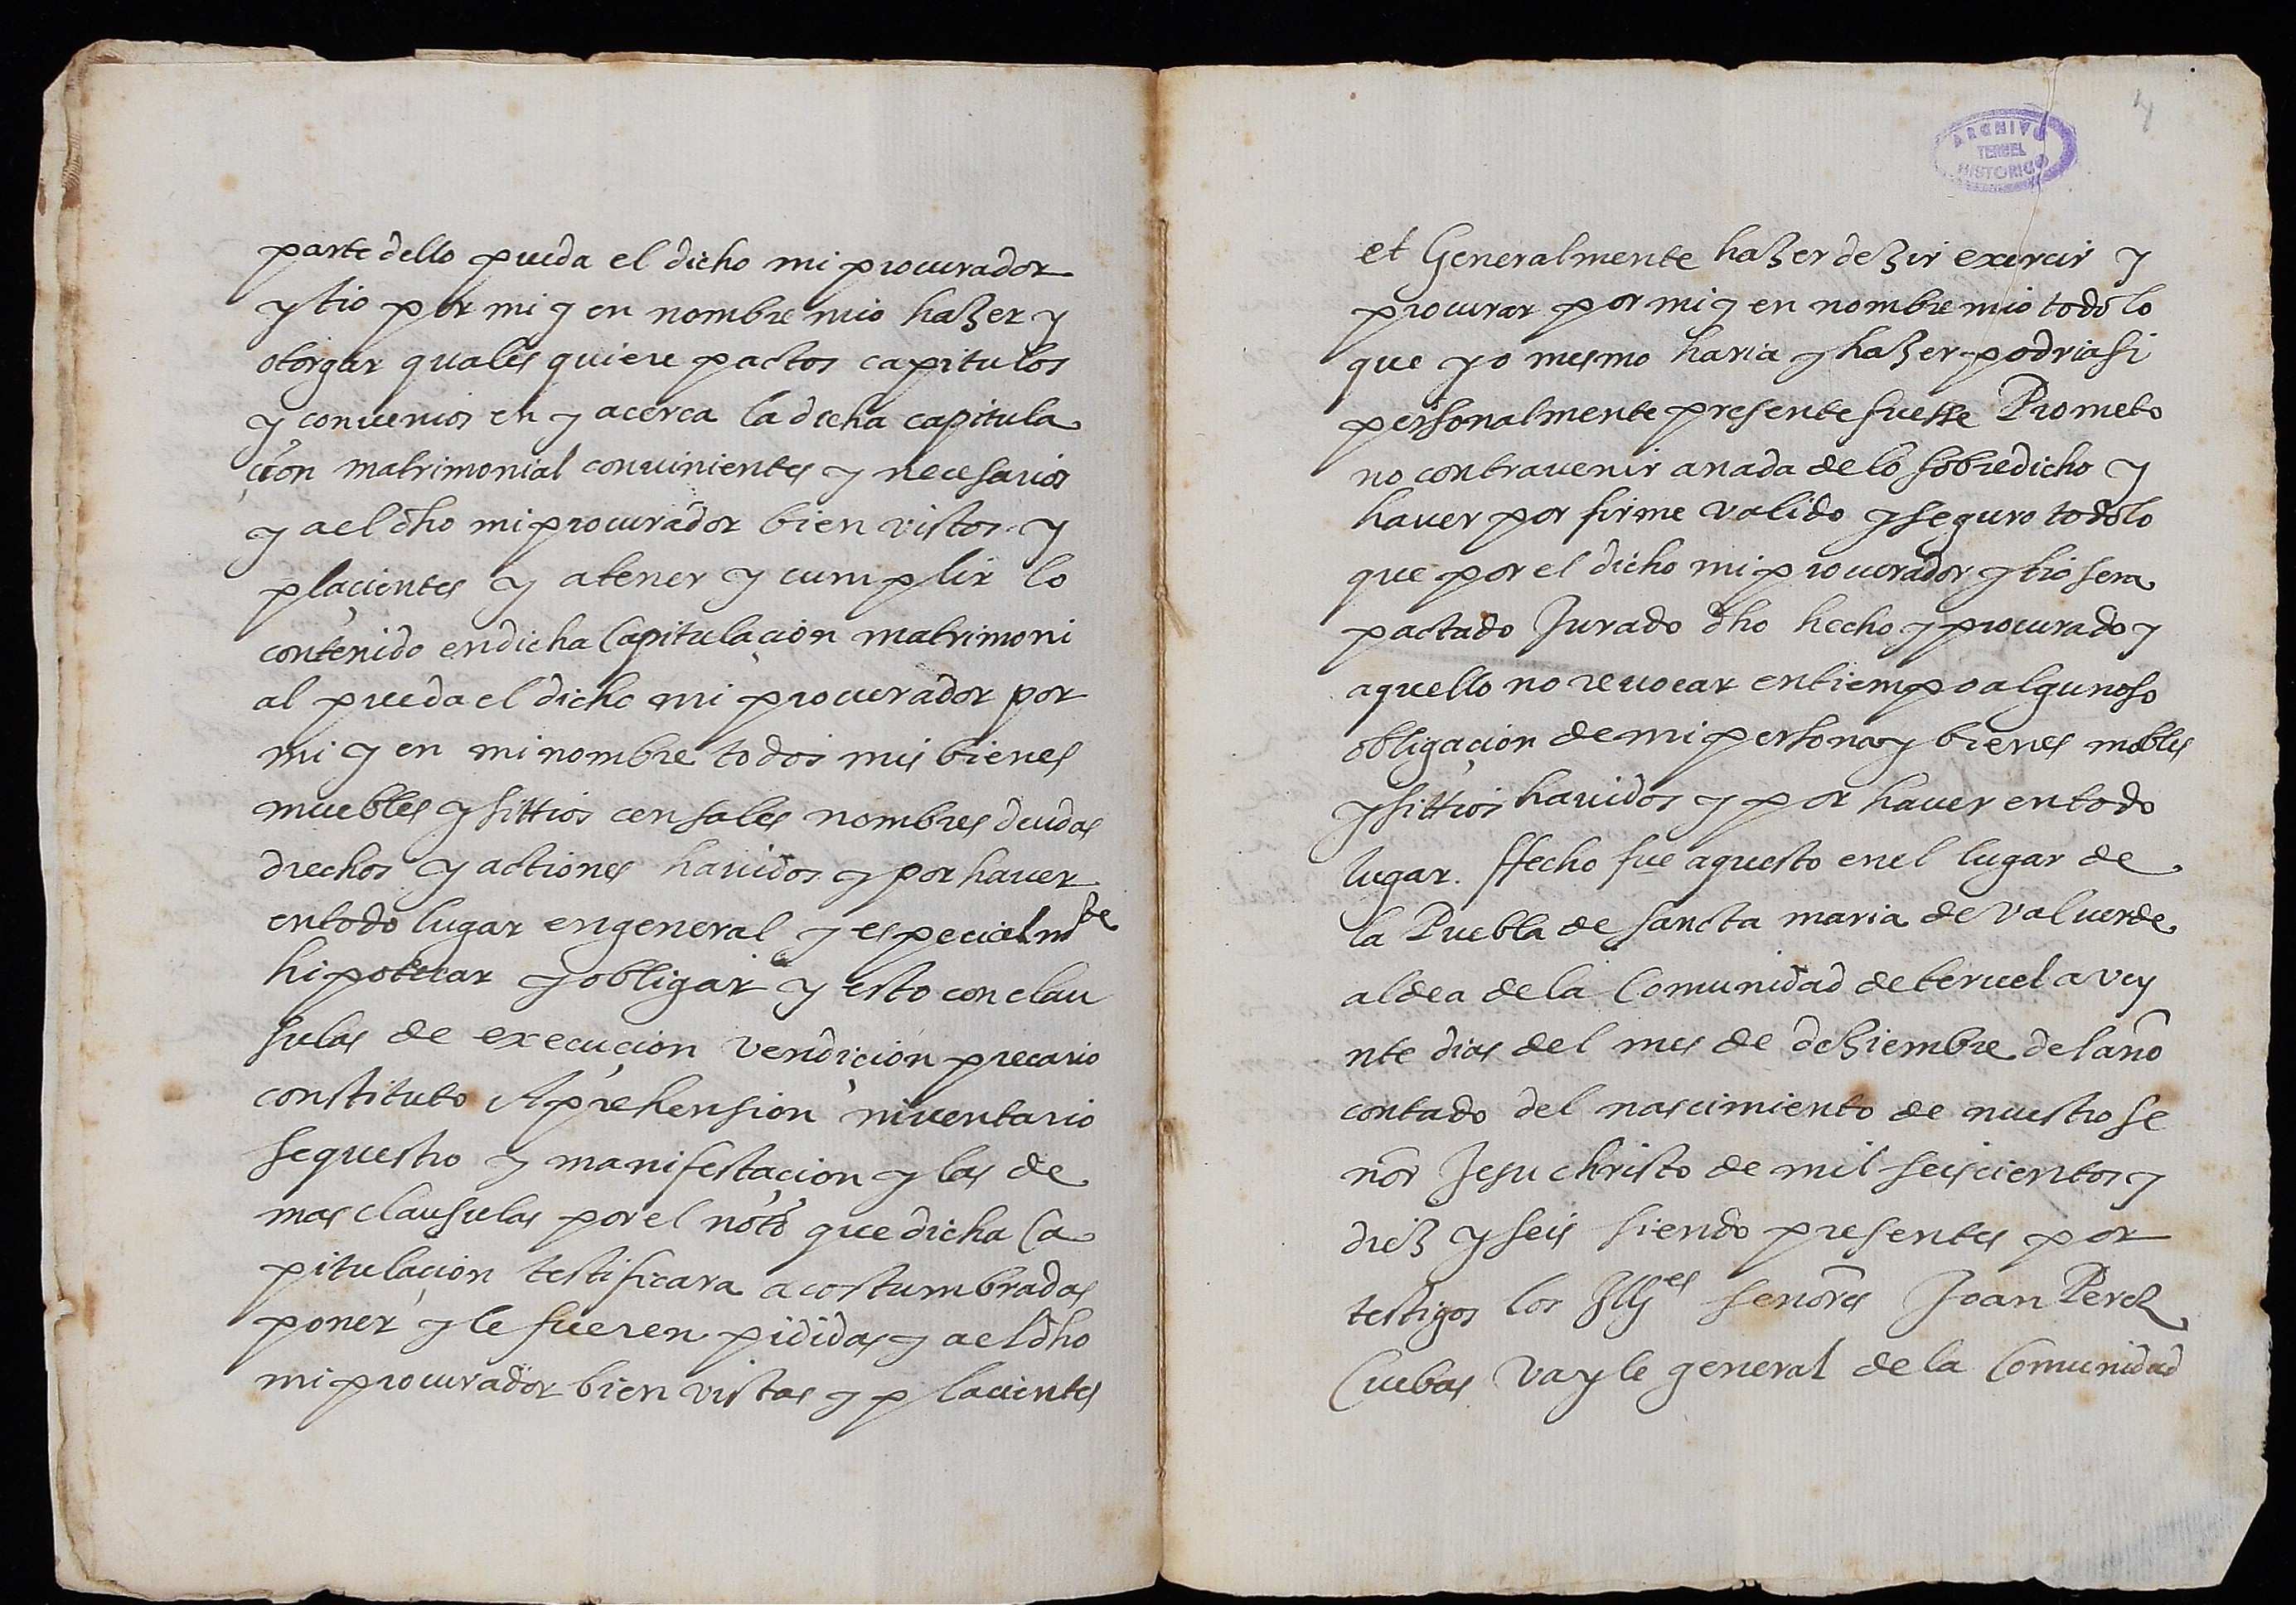 parte dello pueda el dicho mi procurador
y tio por mi y en nombre mio hazer y
otorgar quales quiere pactos capitulos
y conuenios en y acerca la dicha capitula
çion matrimonial conuinientes y necesarios
y a el dho mi procurador bien vistos y
plaçientes y atener y cumplir lo
contenido en dicha Capitulaçion matrimoni
al pueda el dicho mi procurador por
mi y en mi nombre todos mis bienes
muebles y sittios censales nombres deudas
drechos y actiones hauidos y por hauer
en todo lugar en general y especialmte
hipotecar y obligar y esto con clau
sulas de execuçion vendiçion precario
constituto Aprehension inuentario
sequestro y manifestaçion y las de
mas clausulas por el notº que dicha Ca
pitulaçion testificara acostumbradas
poner y le fueren pididas y a el dho
mi procurador bien vistas y placientes
4
ARCHIVO
TERUEL
HISTORICO
et Generalmente hazer dezir exercir y
procurar por mi y en nombre mio todo lo
que yo mesmo haria y hazer podria si
personalmente presente fuesse Prometo
no contravenir a nada de lo sobredicho y
hauer por firme valido y seguro todo lo
que por el dicho mi procurador y tio sera
pactado Jurado dho hecho y procurado y
aquello no reuocar en tiempo alguno so
obligaçion de mi persona y bienes mobles
y sittios hauidos y por hauer en todo
lugar. ffecho fue aquesto en el lugar de
la Puebla de sancta maria de valuerde
aldea de la Comunidad de teruel a vey
nte dias del mes de deziembre del año
contado del nascimiento de nuestro se
ñor Jesu christo de mil seiscientos y
diez y seis siendo presentes por
testigos los Illes señores Joan Perez
Cuebas vayle general de la Comunidad